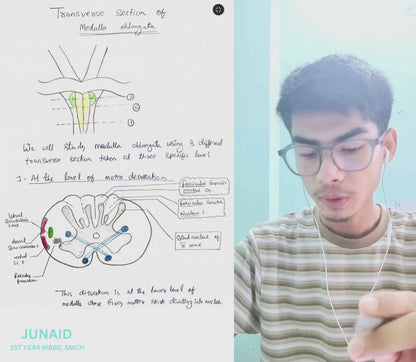 Transverse section of
Medulla oblongata
①
②
③
We will study medulla oblongata using 3 different
transverse section taken at three specific level
1. At the level of motor decussation
fasciculus Gracilis
Nucleus G.
fasciculus Cuneatus
Nucleus C.
Spinal nucleus of
V nerve
lateral
Spinothalamic
tract
dorsal
Spinocerebellar t
ventral
S.C.t
Reticular
formation
This dissection is at the lower level of
medulla where Grey matter start dividing into nuclei.
JUNAID
1ST YEAR MBBS, SMCH